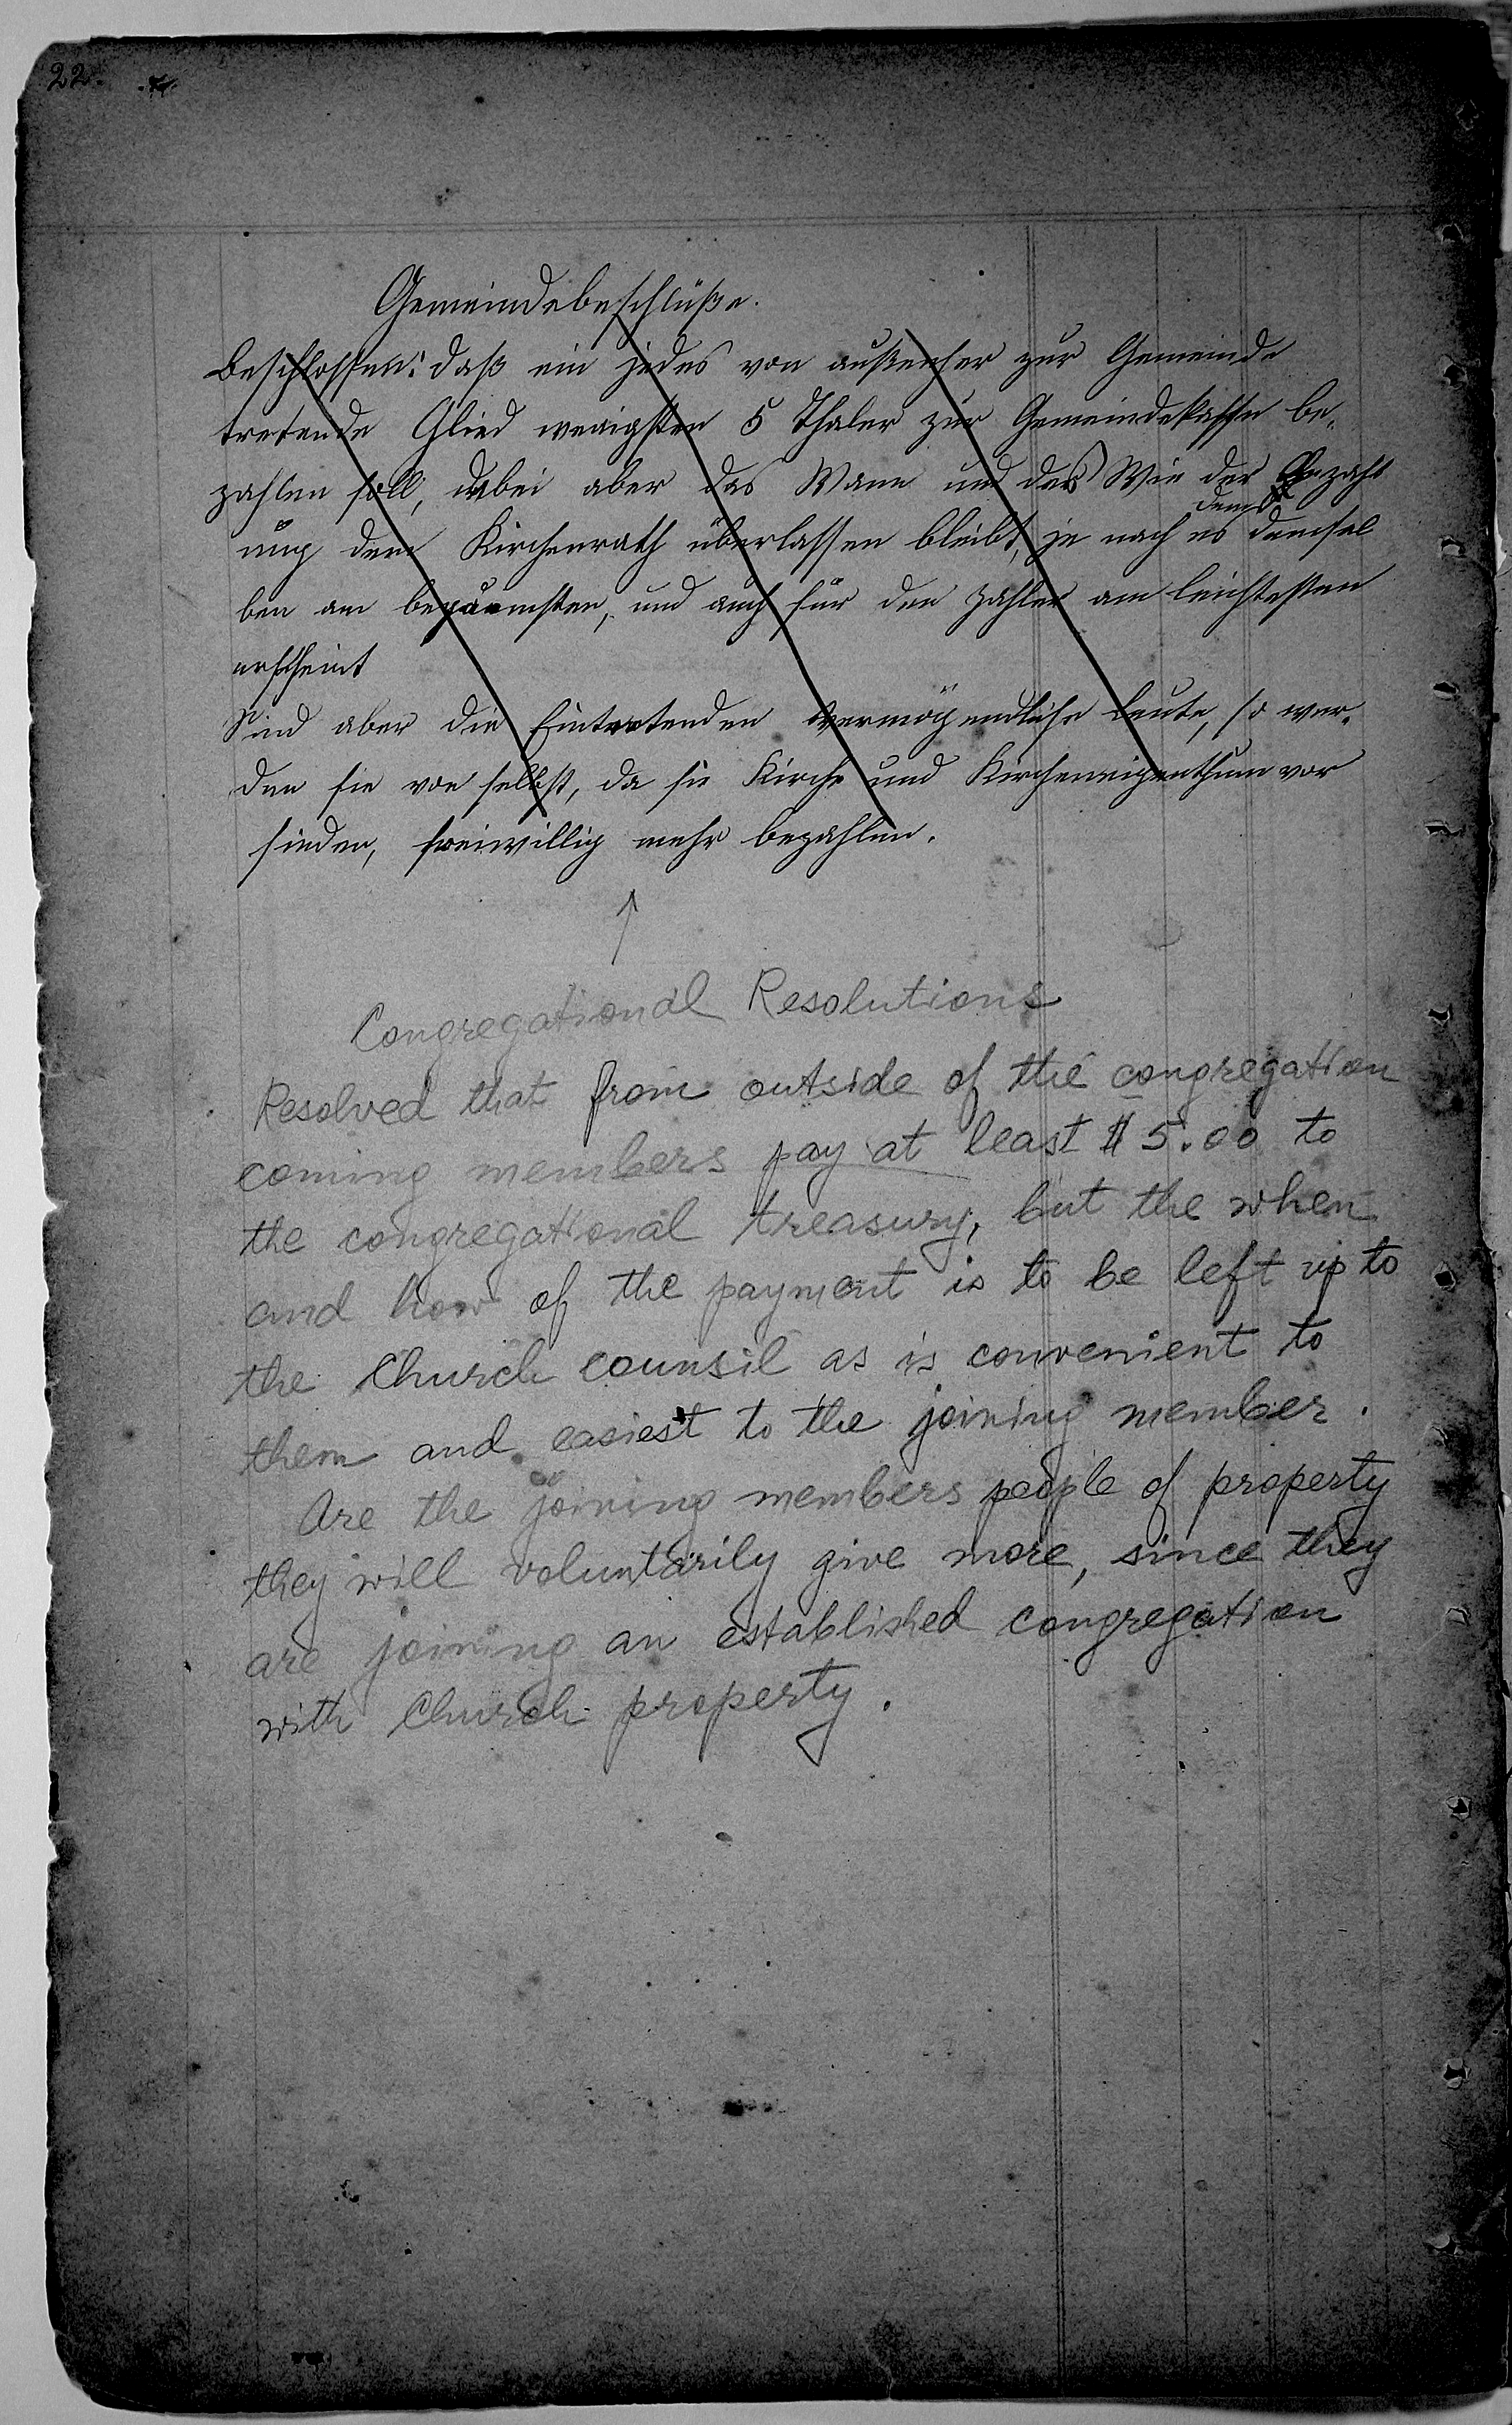 22.
Gemeindebeschlüße.
Beschlossen: daß ein jedes von außenher zur Gemeinde
tretende Glied wenigsten 5 Thaler zur Gemeindekasse be-
zahlen soll, dabei aber das Wann und das Wie der Bezahl
ung dem Kirchenrath überlassen bleibt, je nach es demsel
ben am bequämsten, und auch für den Zahler am leichtesten
erscheint
Sind aber die Eintretenden vermögendliche Leute, so wer-
den sie von selbst, da sie Kirche und Kircheneigenthum vor
finden, freiwillig mehr bezahlen.
↑
Congregational Resolutions
Resolved that from outside of the congregation
coming members pay at least $5.00 to
the congregational treasury, but the when
and how of the payment is to be left up to
the Church counsil as is convenient to
them and easiest to the joining member.
Are the joining members people of property
they will voluntarily give more, since they
are joining an established congregation
with Church property.